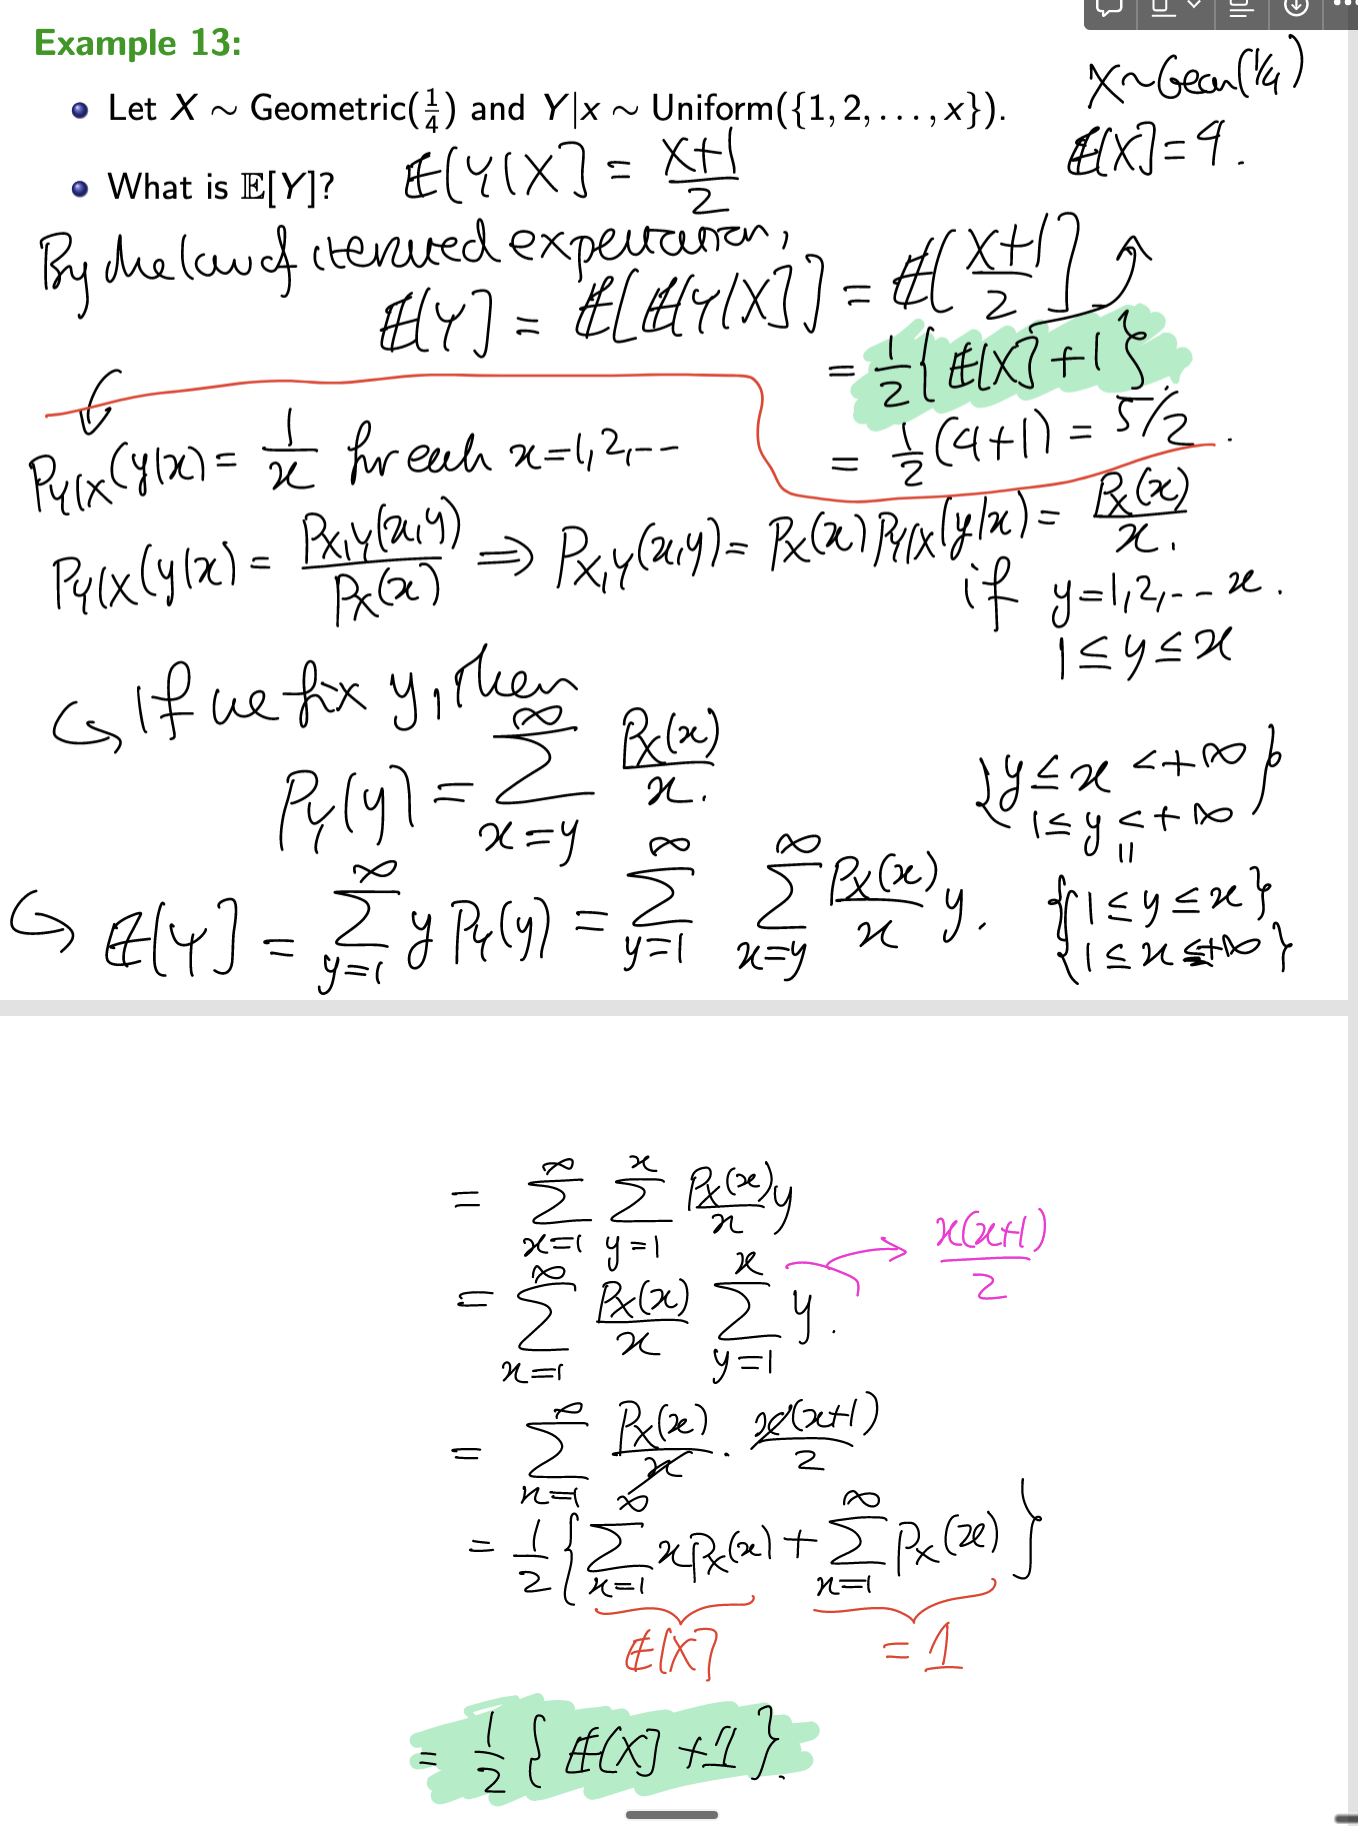 Example 13:
X ~ Geom(1/4)
• Let X ∼ Geometric(1/4) and Y|x ∼ Uniform({1, 2, . . . , x}).
E[X] = 4.
• What is 𝔼[Y]? E[Y|X] = (X+1)/2
By the law of iterated expectation,
E[Y] = E[E[Y|X]] = E[(X+1)/2]
= 1/2 {E[X] + 1}
= 1/2 (4+1) = 5/2.
P_{Y|X}(y|x) = 1/x for each x=1,2,--
P_{Y|X}(y|x) = P_{X,Y}(x,y)/P_X(x) ⇒ P_{X,Y}(x,y) = P_X(x) P_{Y|X}(y|x) = P_X(x)/x.
if y=1,2,--x.
1≤y≤x
↪ If we fix y, then
P_Y(y) = ∑_{x=y}^{∞} P_X(x)/x.
{y ≤ x < +∞
1≤ y ≤ +∞}
=
↪ E[Y] = ∑_{y=1}^{∞} y P_Y(y) = ∑_{y=1}^{∞} ∑_{x=y}^{∞} P_X(x)/x y.
{1≤y≤x
1≤x≤+∞}
= ∑_{x=1}^{∞} ∑_{y=1}^{x} P_X(x)/x y
= ∑_{x=1}^{∞} P_X(x)/x ∑_{y=1}^{x} y. → x(x+1)/2
= ∑_{x=1}^{∞} P_X(x)/x · x(x+1)/2
= 1/2 {∑_{x=1}^{∞} x p_X(x) + ∑_{x=1}^{∞} p_X(x)}
E[X] = 1
= 1/2 {E[X] + 1}.